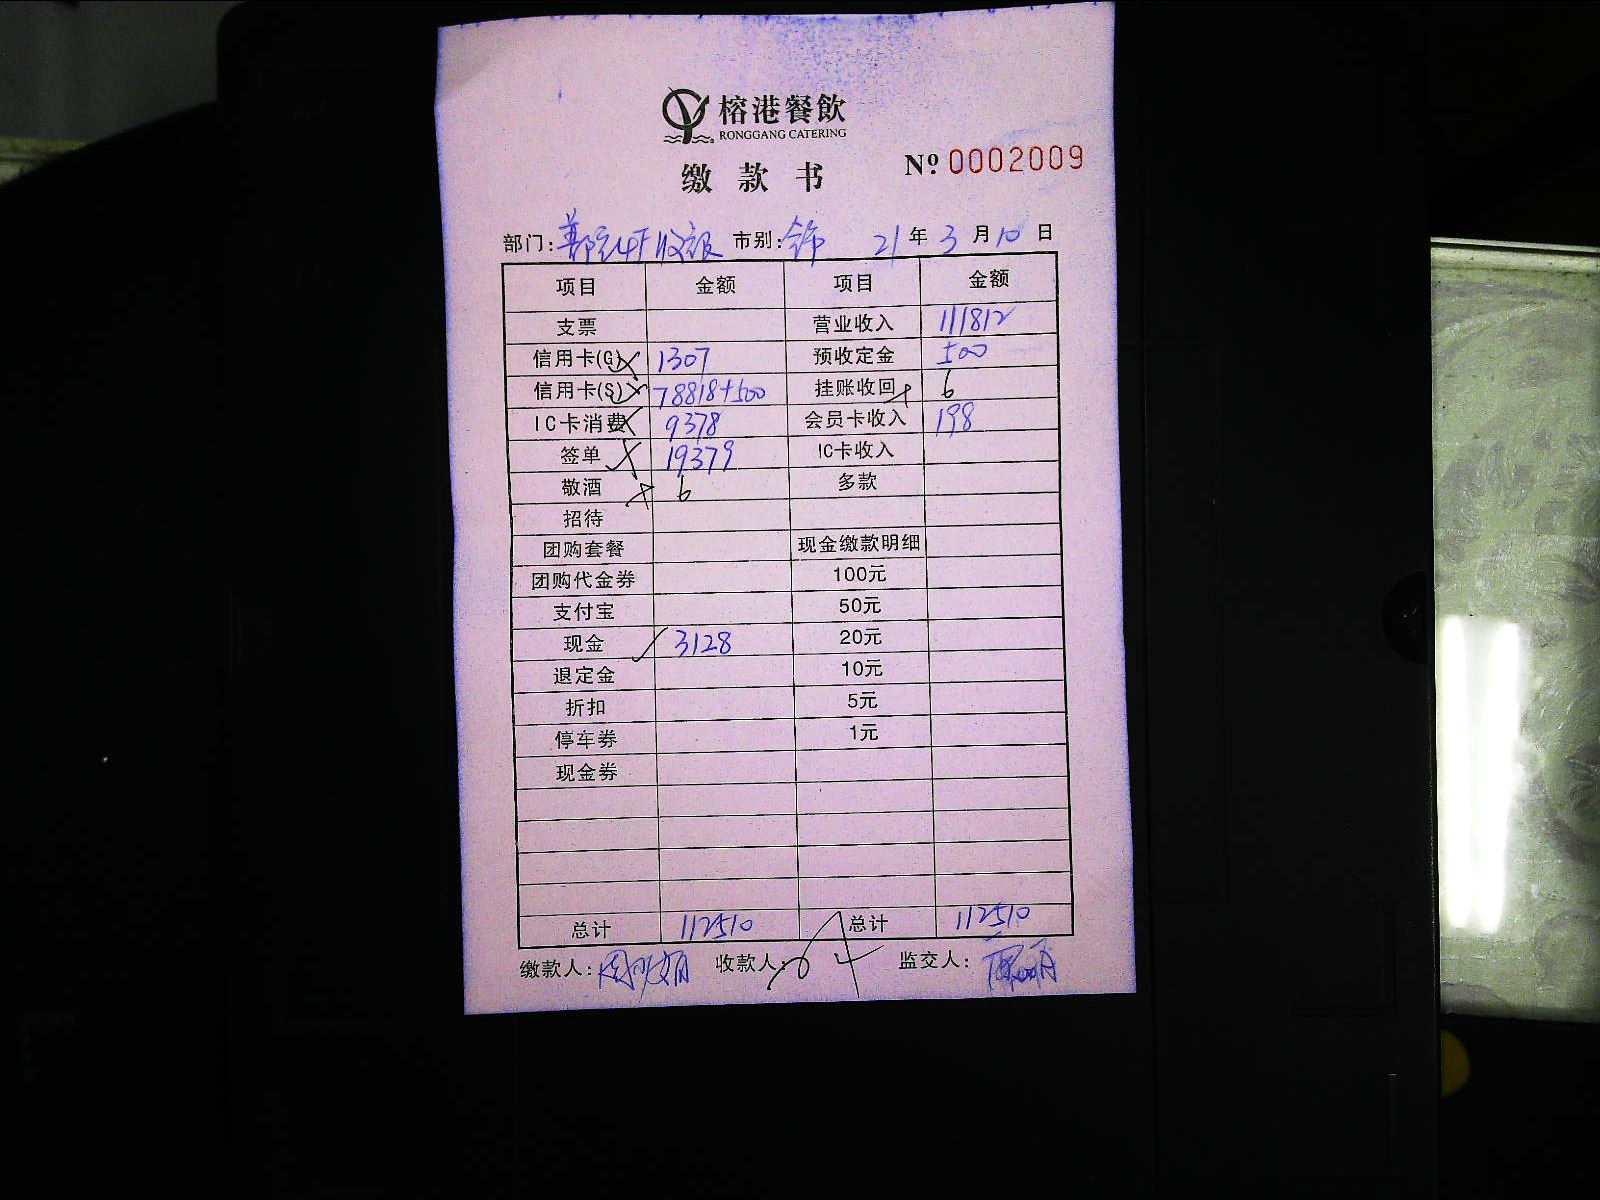 榕港餐飲
RONGGANG CATERING
缴款书
Nº 0002009
部门: 收银 市别: 全市 21年3月10日
项目 金额 项目 金额
支票 营业收入 111812
信用卡(G) 1307 预收定金 500
信用卡(S) 78818+500 挂账收回 6
IC卡消费 9378 会员卡收入 198
签单 19379 IC卡收入
敬酒 6 多款
招待
团购套餐 现金缴款明细
团购代金券 100元
支付宝 50元
现金 3128 20元
退定金 10元
折扣 5元
停车券 1元
现金券
总计 112510 总计 112510
缴款人: 收款人: 监交人: